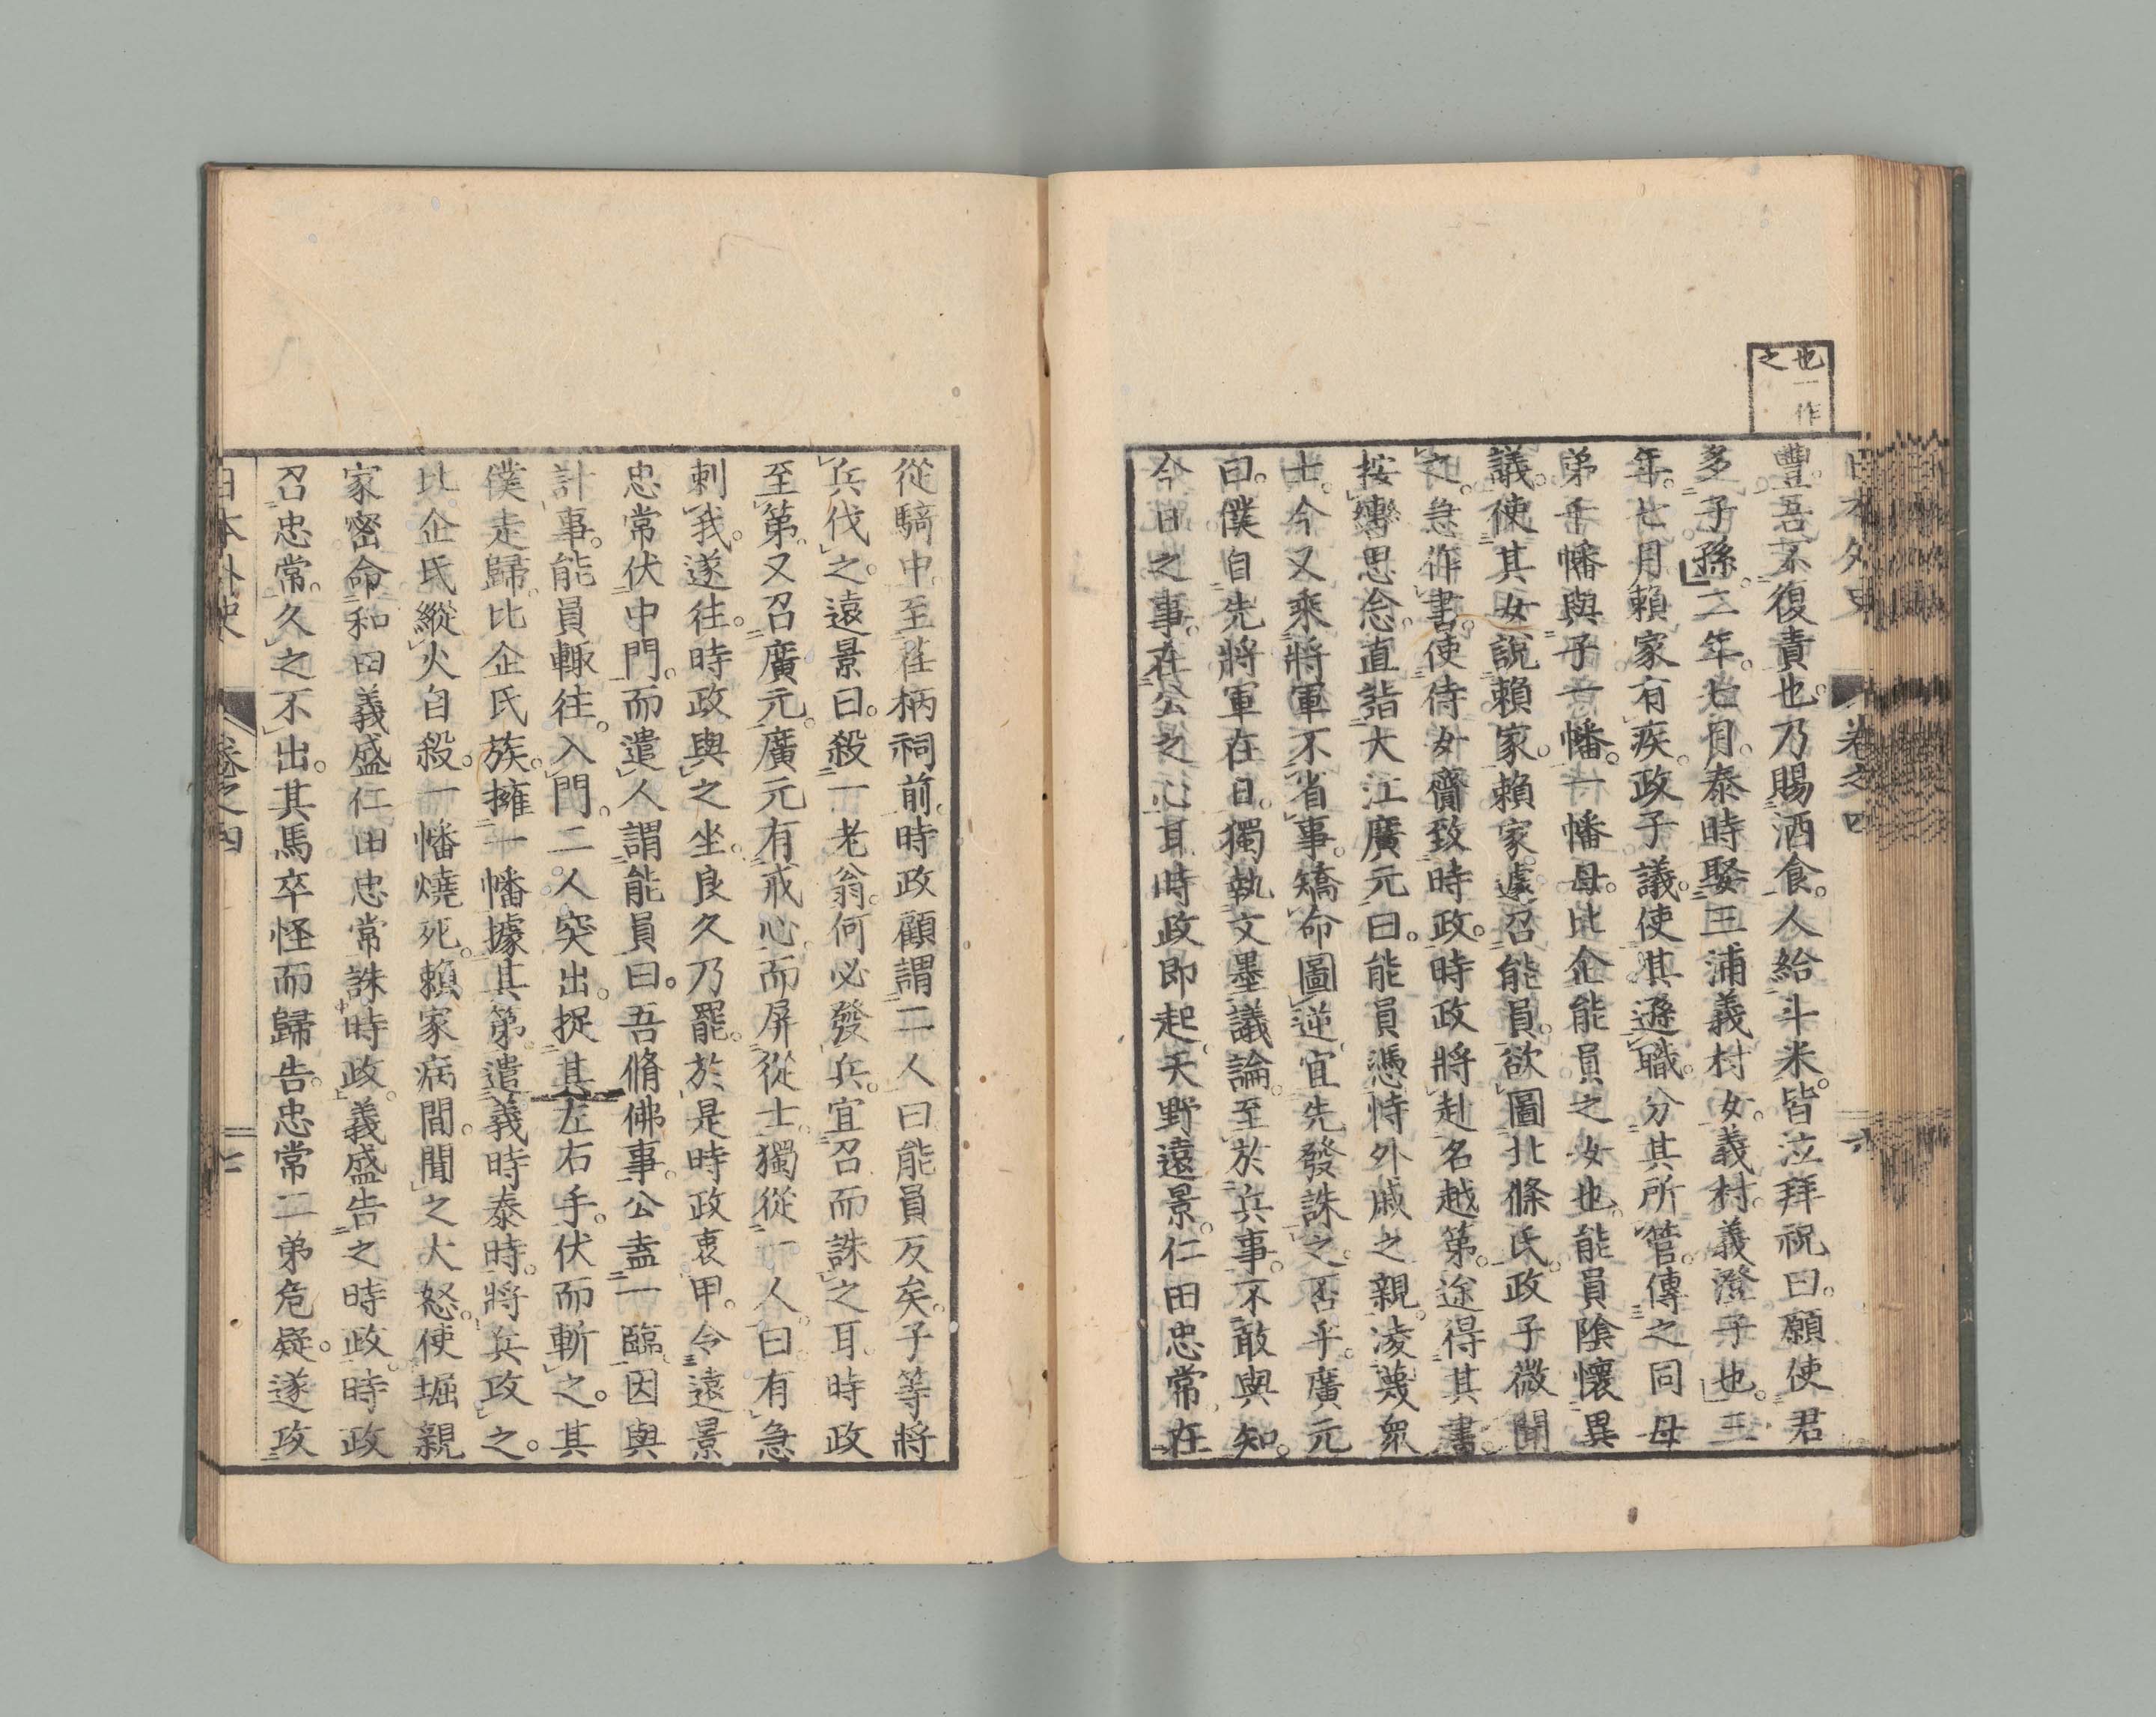 也一作
之
日本外史 卷之四 六
豐。吾不復責也。乃賜酒食。人給斗米。皆泣拜祝曰。願使君
多子孫。二年。七月。泰時娶三浦義村女。義村。義澄子也。三
年。七月。賴家有疾。政子議。使其遜職。分其所管。傳之同母
弟千幡與子一幡。一幡母。比企能員之女也。能員陰懷異
議。使其女說賴家。賴家遽召能員。欲圖北條氏。政子微聞
之。急作書。使侍女齎致時政。時政將赴名越第。途得其書。
按轡思忿。直詣大江廣元曰。能員憑恃外戚之親。凌蔑衆
士。今又乘將軍不省事。矯命圖逆。宜先發誅之。否乎。廣元
曰。僕自先將軍在日。獨執文墨議論。至於兵事。不敢與知。
今日之事。在公之心耳。時政即起。天野遠景。仁田忠常。在
從騎中。至荏柄祠前。時政顧謂二人曰。能員反矣。子等將
兵伐之。遠景曰。殺一老翁。何必發兵。宜召而誅之耳。時政
至第。又召廣元。廣元有戒心。而屏從士。獨從一人。曰。有急
刺我。遂往。時政與之坐。良久乃罷。於是時政衷甲。令遠景
忠常伏中門。而遣人謂能員曰。吾脩佛事。公盍一臨。因與
計事。能員輙往。入門。二人突出。捉其左右手。伏而斬之。其
僕走歸。比企氏族。擁一幡據其第。遣義時泰時。將兵攻之。
比企氏縱火自殺。一幡燒死。賴家病間。聞之大怒。使堀親
家密命和田義盛仁田忠常誅時政。義盛告之時政。時政
召忠常。久之不出。其馬卒怪而歸告。忠常二弟危疑。遂攻
日本外史 卷之四 七